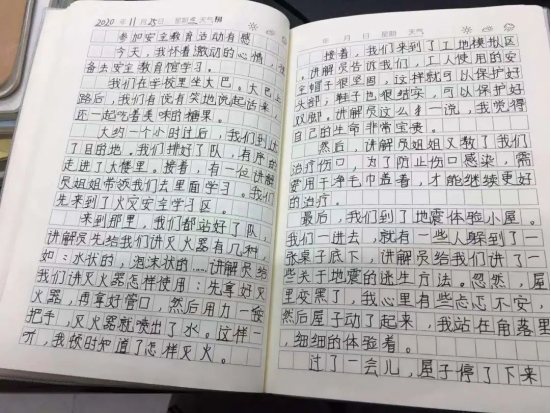 2020 年 11 月 25 日 星期 三 天气 阴
参加安全教育活动有感
今天，我怀着激动的心情，
备去安全教育馆学习。
我们在学校里坐大巴。大巴上
路后，我们有说有笑地说起话来，
还一起吃着美味的糖果。
大约一个小时过后，我们到达
了目的地。我们排好了队，有序的
走进了大楼里。接着，有一位讲解
员姐姐带派我们去里面学习。我们
先来到了火灾安全学习区。
来到那里，我们都站好了队，
讲解员先给我们讲灭火器有几种，
如：水状的，泡沫状的……讲解员给
我们讲灭火器怎样使用：先拿好灭
火器，再拿好管口，然后用力一按
把手，灭火器就喷出了水。这样一
来，我顿时知道了怎样灭火。
年 月 日 星期 天气
接着，我们来到了工地模拟区
。讲解员告诉我们，工人使用的安
全帽子很坚固，这样就可以保护好
头部，鞋子也很结实，可以保护好
双脚。讲解员这么一说，我觉得
自己的生命非常宝贵。
然后，讲解员姐姐又教了我们
治疗伤口，为了防止伤口感染，需
要用干净毛巾盖着，才能继续更好
的治疗。
最后，我们到了地震体验小屋。
我们一进去，就有一些人躲到了一
张桌子底下，讲解员给我们讲了一
些关于地震的逃生方法。忽然，屋
里变黑了，我心里有些忐忑不安，
然后屋子动了起来，我站在角落里
，细细的体验着。
过了一会儿，屋子停了下来